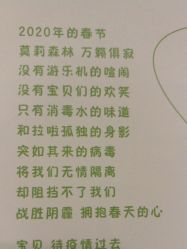 2020年的春节
莫莉森林 万籁俱寂
没有游乐机的喧闹
没有宝贝们的欢笑
只有消毒水的味道
和拉啦孤独的身影
突如其来的病毒
将我们无情隔离
却阻挡不了我们
战胜阴霾 拥抱春天的心
宝贝 待疫情过去